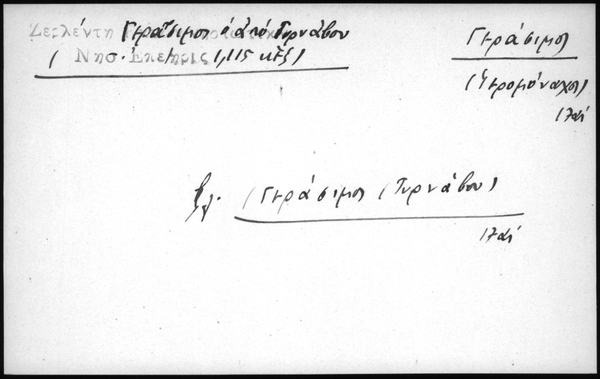 Ζερλέντη Γεράσιμος ὁ ἀπό Τυρνάβου
( Νησ. Ἐπετηρὶς 1,115 κἑξ)
Γεράσιμος
(Ἱερομόναχος)
17 αἰ
βλ. (Γεράσιμος (Τυρνάβου)
17 αἰ